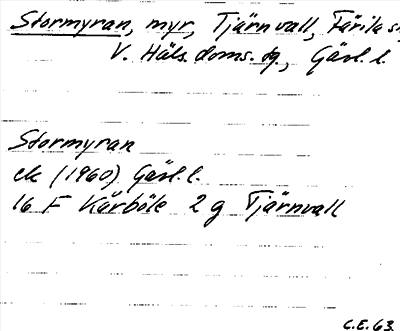 Stormyran, myr, Tjärnvall, Färila sn,
V. Häls. doms. sg., Gävl. l.
Stormyran
ek (1960) Gävl. l.
16 F Kårböle 2 g Tjärnvall
C.E. 63.